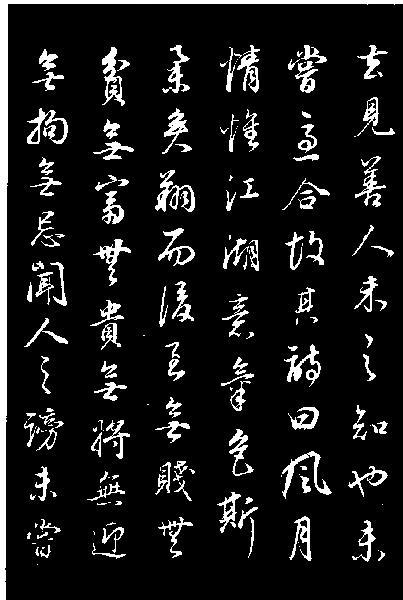 去見善人未之知也未
嘗急合故其詩曰風月
情惟江湖意氣色斯
舉矣翔而後至無賤無
貧無富無貴無將無迎
無拘無忌聞人之謗未嘗